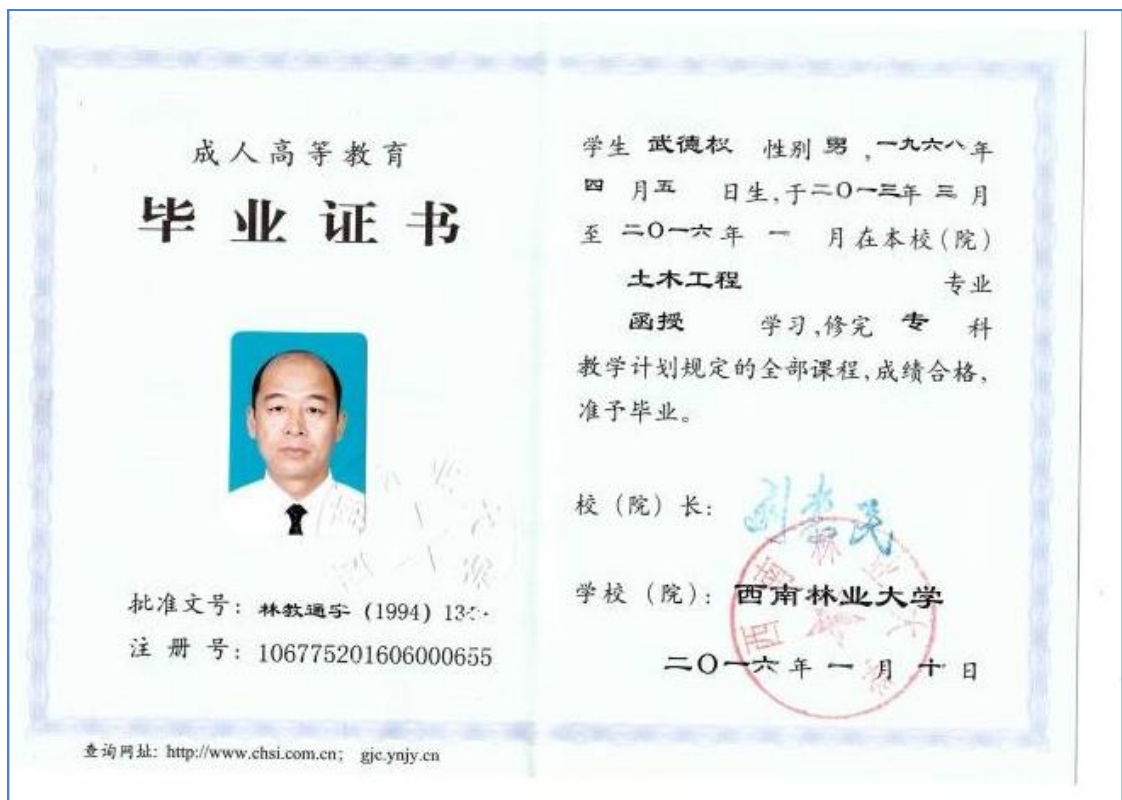 成人高等教育
毕业证书
批准文号：林教通字（1994）13
注册号：106775201606000655
查询网址：http://www.chsi.com.cn； gjc.ynjy.cn
学生 武德松 性别 男，一九六八年
四月五日生，于二〇一三年三月
至二〇一六年一月在本校（院）
土木工程 专业
函授 学习，修完 专 科
教学计划规定的全部课程，成绩合格，
准予毕业。
校（院）长：
学校（院）：西南林业大学
二〇一六年一月十日
西南林业大学